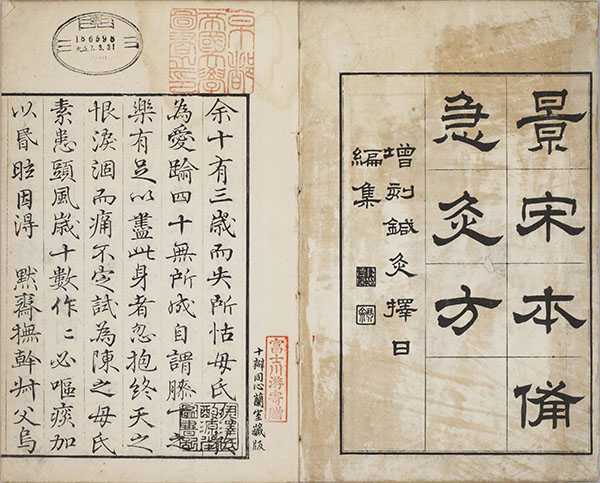 景宋本備
急灸方
增刻鍼灸擇日
編集
京都
帝國大學
圖書之印
186698
大正7.3.31
余十有三歲而失所怙母氏
為愛踰四十無所成自謂膝下之
樂有足以盡此身者忽抱終天之
恨淚涸而痛不定試為陳之母氏
素患頭風歲十數作〻必嘔痰加
以昬眩因得 默齋撫幹叔父烏
富士川游寄贈
十瓣同心蘭室藏版
伊澤氏
酌源堂
圖書記